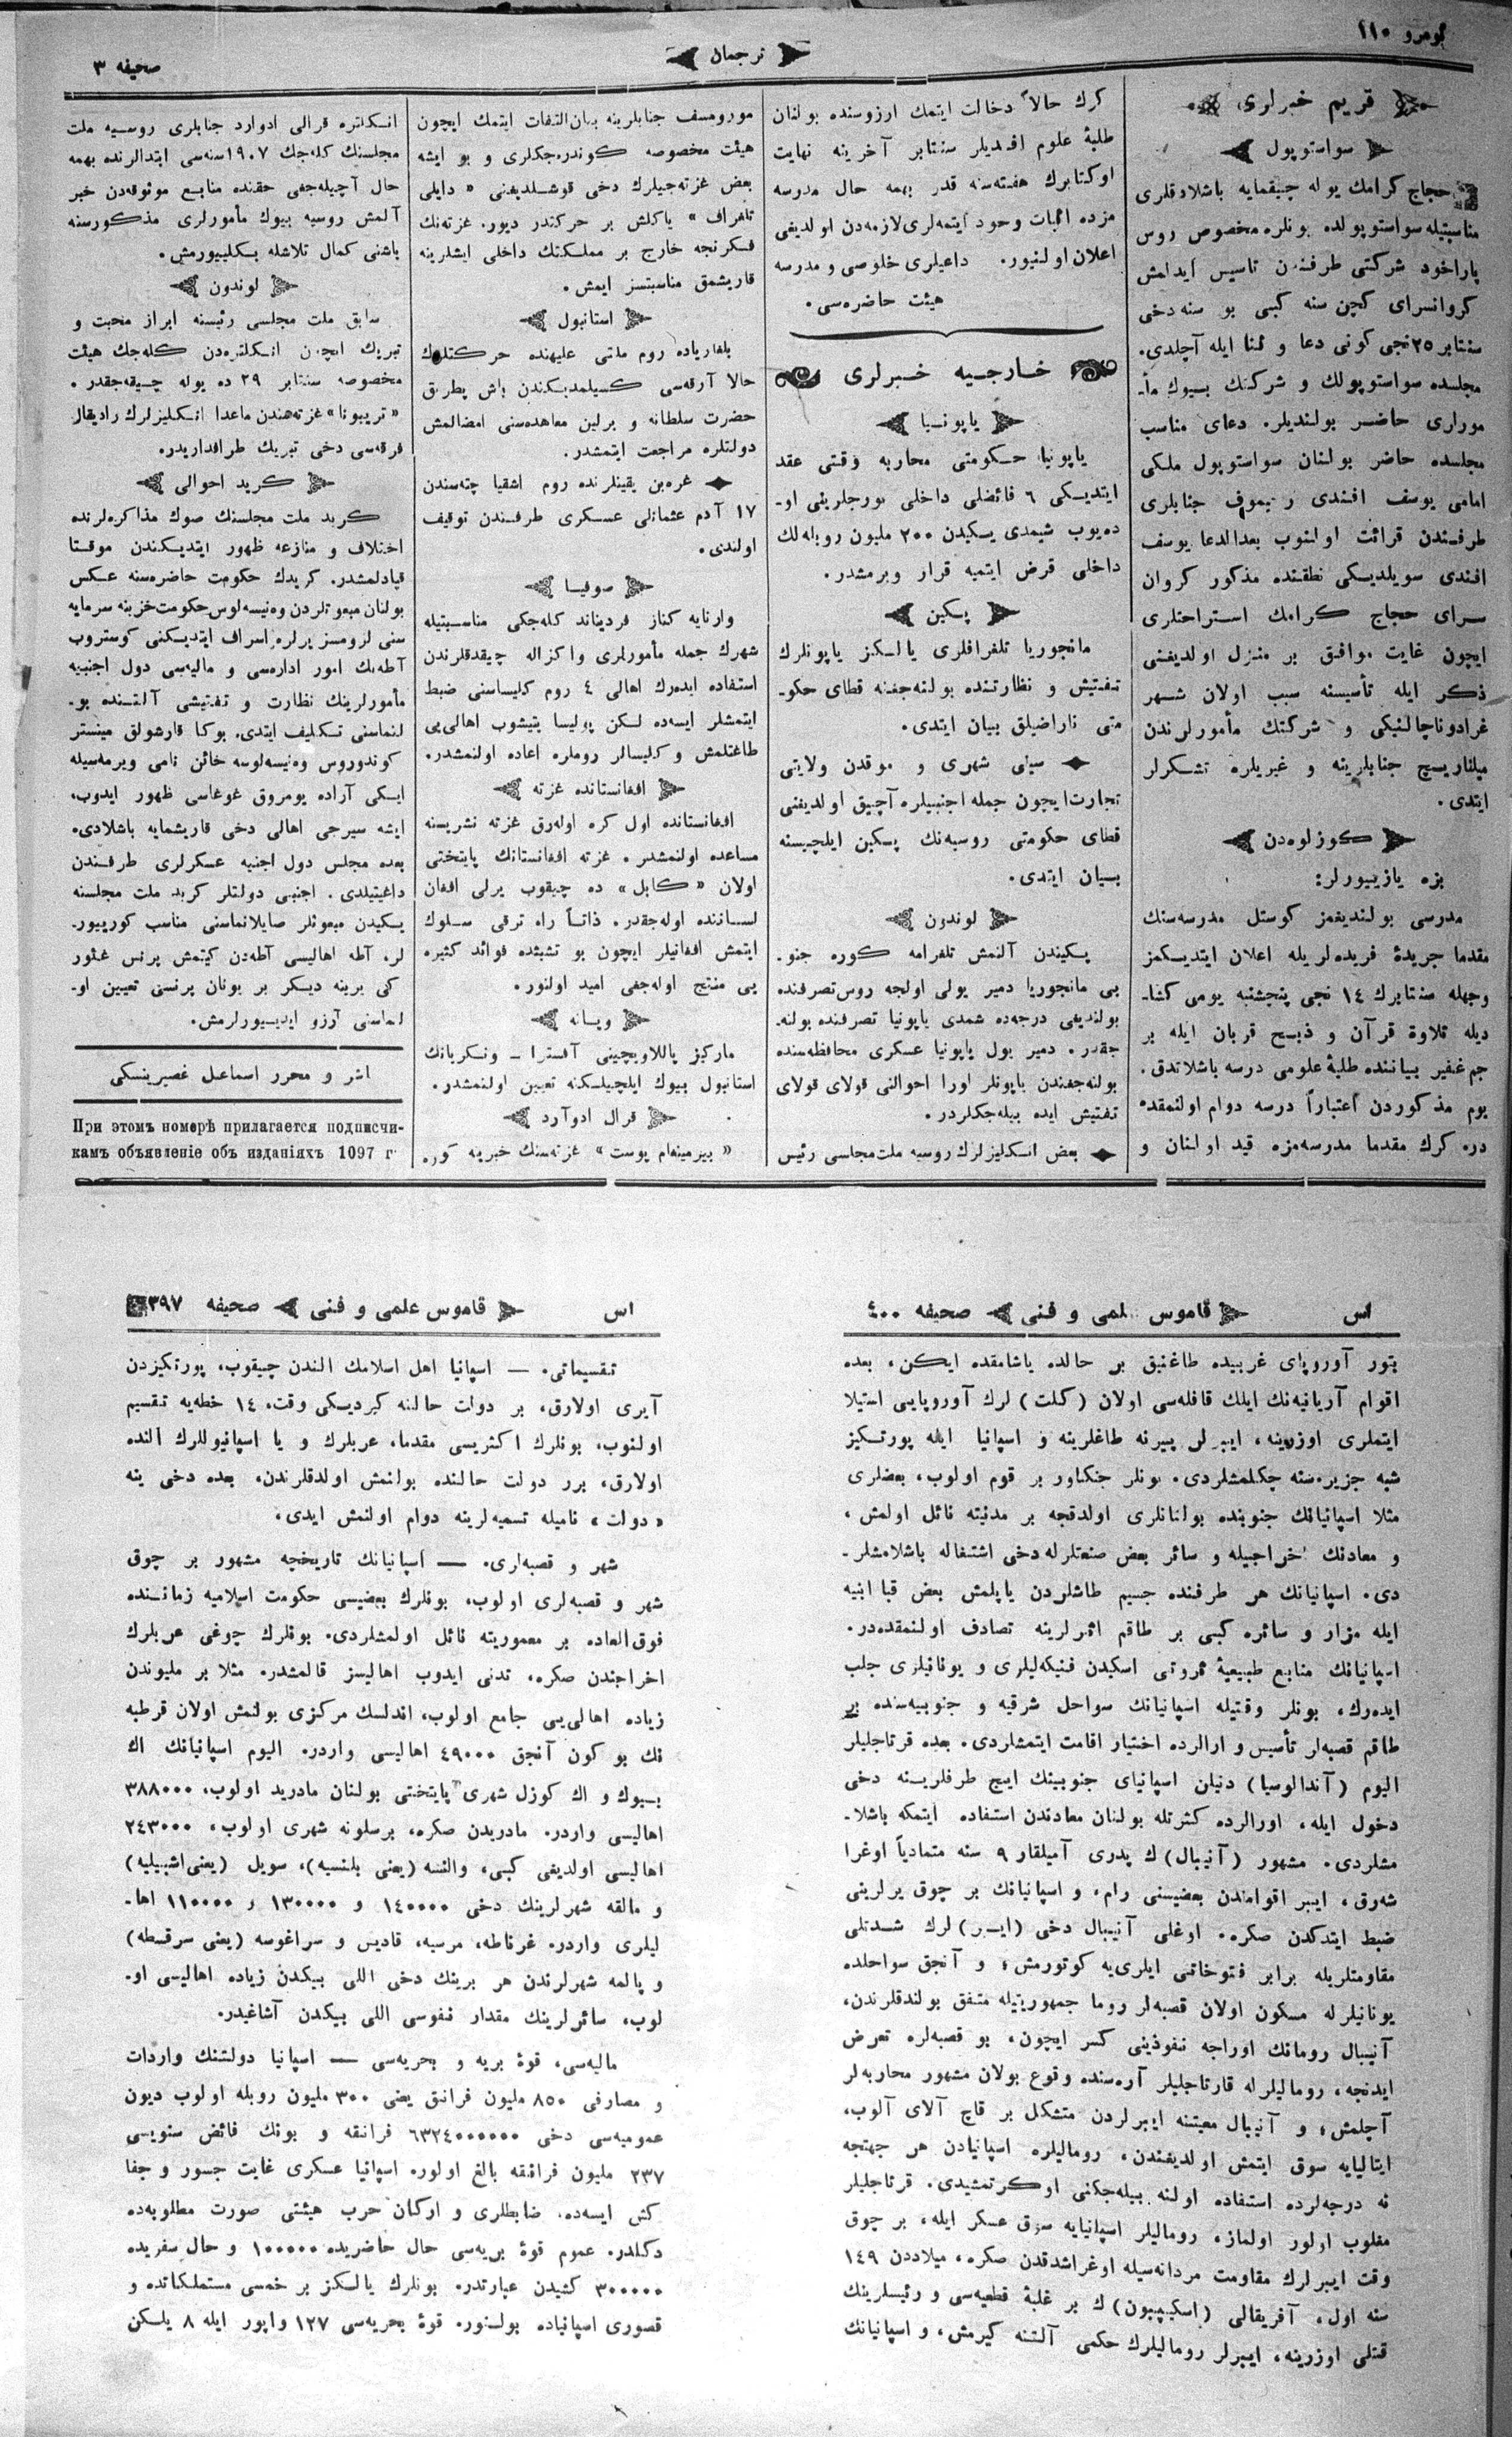 نومرو ١١٠
ترجمان
صحیفه ٣
قریم خبرلری
سواستوپول
حجاج كرامك یوله چیقمایه باشلادقلری
مناسبتیله سواستوپولده بونلره مخصوص روس
پاراخود شركتی طرفندن تاسیس ایدلمش
كروانسرای كچن سنه كبی بو سنه دخی
سنتابر ٢٥نجی كونی دعا و ثنا ایله آچلدی.
مجلسده سواستوپولك و شركتك بیوك مأ-
مورلری حاضر بولندیلر. دعای مناسب
مجلسده حاضر بولنان سواستوپول ملكی
امامی یوسف افندی رحیموف جنابلری
طرفندن قرائت اولنوب بعدالدعا یوسف
افندی سویلدیكی نطقنده مذكور كروان
سرای حجاج كرامك استراحتلری
ایچون غایت موافق بر منزل اولدیغنی
ذكر ایله تأسیسنه سبب اولان شهر
غرادوناچالنیكی و شركتك مأمورلرندن
میلناریچ جنابلرینه و غیریلره تشكرلر
ایتدی.
كوزلوه‌دن
بزه یازییورلر:
مدرسی بولندیغمز كوستل مدرسه‌سنك
مقدما جریدۀ فریده‌لریله اعلان ایتدیكمز
وجهله سنتابرك ١٤ نجی پنجشنبه یومی كشا-
دیله تلاوة قرآن و ذبح قربان ایله بر
جم غفیر بیاننده طلبۀ علومی درسه باشلاتدق.
یوم مذكوردن اعتباراً درسه دوام اولنمقده
دره كرك مقدما مدرسه‌مزه قید اولنان و
كرك حالاً دخالت ایتمك ارزوسنده بولنان
طلبۀ علوم افندیلر سنتابر آخرینه نهایت
اوكتابرك هفته‌سنه قدر بهمه حال مدرسه
مزده اثبات وجود ایتمه‌لری لازمه‌دن اولدیغی
اعلان اولنیور. داعیلری خلوصی و مدرسه
هیئت حاضره‌سی.
خارجیه خبرلری
یاپونیا
یاپونیا حكومتی محاربه وقتی عقد
ایتدیكی ٦ فائضلی داخلی بورجلرینی او-
ده‌یوب شیمدی یكیدن ٢٠٠ ملیون روبله‌لك
داخلی قرض ایتمیه قرار ویرمشدر.
پكین
مانجوریا تلفرافلری یالكز یاپونلرك
تفتیش و نظارتنده بولنه‌جغنه قطای حكو-
متی ناراضیلق بیان ایتدی.
سیلی شهری و موقدن ولایتی
تجارت ایچون جمله اجنبیلره آچیق اولدیغنی
قطای حكومتی روسیه‌نك پكین ایلچیسنه
بیان ایتدی.
لوندون
پكیندن آلنمش تلغرامه كوره جنو-
بی مانجوریا دمیر یولی اولجه روس تصرفنده
بولندیغی درجه‌ده شمدی یاپونیا تصرفنده بولنه-
جقدر. دمیر یول یاپونیا عسكری محافظه‌سنده
بولنه‌جغندن یاپونلر اورا احوالنی قولای قولای
تفتیش ایده بیله‌جكلردر.
بعض انكلیزلرك روسیه ملت مجلسی رئیس
مورومسف جنابلرینه بیان التفات ایتمك ایچون
هیئت مخصوصه كوندره‌جكلری و بو ایشه
بعض غزته‌جیلرك دخی قوشلدیغنی « دایلی
تلغراف » یاكلش بر حركتدر دیور. غزته‌نك
فكرنجه خارج بر مملكتك داخلی ایشلرینه
قاریشمق مناسبتسز ایمش.
استانبول
بلغاریاده روم ملتی علیهنده حركتلرك
حالا آرقه‌سی كسیلمدیكندن باش پطریق
حضرت سلطانه و برلین معاهده‌سنی امضالمش
دولتلره مراجعت ایتمشدر.
غره‌بن یقینلرنده روم اشقیا چته‌سندن
١٧ آدم عثمانلی عسكری طرفندن توقیف
اولندی.
صوفیا
وارنایه كناز فردیناند كله‌جكی مناسبتیله
شهرك جمله مأمورلری واكزاله چیقدقلرندن
استفاده ایده‌رك اهالی ٤ روم كلیساسنی ضبط
ایتمشلر ایسه‌ده لكن پولیسا یتیشوب اهالی‌یی
طاغتلمش و كلیسالر روملره اعاده اولنمشدر.
افغانستانده غزته
افغانستانده اول كره اوله‌رق غزته نشریسنه
مساعده اولنمشدر. غزته افغانستانك پایتختی
اولان « كابل » ده چیقوب یرلی افغان
لساننده اوله‌جقدر. ذاتاً راه ترقی سلوك
ایتمش افغانیلر ایچون بو تشبثده فوائد كثیره
یی منتج اوله‌جغی امید اولنور.
ویانه
ماركیز پاللاویچینی آفسترا ـ ونكریانك
استانبول بیوك ایلچیلكنه تعیین اولنمشدر.
قرال ادوآرد
« بیرمینغام پوست » غزته‌سنك خبرینه كوره
انكلتره قرالی ادوارد جنابلری روسیه ملت
مجلسنك كله‌جك ١٩٠٧ سنه‌سی ابتدالرنده بهمه
حال آچیله‌جغی حقنده منابع موثوقه‌دن خبر
آلمش روسیه بیوك مأمورلری مذكورسنه
باشنی كمال تلاشله بكلییورمش.
لوندون
سابق ملت مجلسی رئیسنه ابراز محبت و
تبریك ایچون انكلتره‌دن كله‌جك هیئت
مخصوصه سنتابر ٢٩ ده یوله چیقه‌جقدر.
«تریبونا» غزته‌سندن ماعدا انكلیزلرك رادیقال
فرقه‌سی دخی تبریك طرافداریدر.
كرید احوالی
كرید ملت مجلسنك صوك مذاكره‌لرنده
اختلاف و منازعه ظهور ایتدیكندن موقتا
قپادلمشدر. كریدك حكومت حاضره‌سنه عكس
بولنان مبعوثلردن وه‌نیسه‌لوس حكومت خزینه سرمایه
سنی لزومسز یرلره اسراف ایتدیكنی كوستروب
آطه‌نك امور اداره‌سی و مالیه‌سی دول اجنبیه
مأمورلرینك نظارت و تفتیشی آلتنده بو-
لنماسنی تكلیف ایتدی. بوكا قارشولق مینستر
كوندوروس وه‌نیسه‌لوسه خائن نامی ویرمه‌سیله
ایكی آراده یومروق غوغاسی ظهور ایدوب،
ایشه سیرجی اهالی دخی قاریشمایه باشلادی.
بعده مجلس دول اجنبیه عسكرلری طرفندن
داغیتیلدی. اجنبی دولتلر كرید ملت مجلسنه
یكیدن مبعوثلر صایلانماسنی مناسب كورییور-
لر. آطه اهالیسی آطه‌دن كیتمش پرنس غئور
كی یرینه دیكر بر یونان پرنسی تعیین او-
لنماسنی آرزو ایدییورلرمش.
ناشر و محرر اسماعیل غصپرینسكی
При этомъ номерѣ прилагается подписчи-
камъ объявленіе объ изданіяхъ 1097 г.
اس   قاموس علمی و فنی   صحیفه ٤٠٠
بتور آوروپای غربیده طاغنیق بر حالده یاشامقده ایكن، بعده
اقوام آریانیه‌نك ایلك قافله‌سی اولان (كلت) لرك آوروپایی استیلا
ایتملری اوزرینه، ایبرلر پیرنه طاغلرینه و اسپانیا ایله پورتكیز
شبه جزیره‌سنه چكلمشلردی. بونلر جنكاور بر قوم اولوب، بعضلری
مثلا اسپانیانك جنوبنده بولنانلری اولدقجه بر مدنیته نائل اولمش،
و معادنك اخراجیله و سائر بعض صنعتلرله دخی اشتغاله باشلامشلر-
دی. اسپانیانك هر طرفنده جسیم طاشلردن یاپلمش بعض قبا ابنیه
ایله مزار و سائره كبی بر طاقم اثرلرینه تصادف اولنمقده‌در.
اسپانیانك منابع طبیعیۀ ثروتی اسكیدن فنیكه‌لیلری و یونانیلری جلب
ایده‌رك، بونلر وقتیله اسپانیانك سواحل شرقیه و جنوبیه‌سنده بر
طاقم قصبه‌لر تأسیس و ارالرده اختیار اقامت ایتمشلردی. بعده قرتاجلیلر
الیوم (آندالوسیا) دنیلن اسپانیای جنوبینك ایچ طرفلرینه دخی
دخول ایله، اورالرده كثرتله بولنان معادندن استفاده ایتمكه باشلا-
مشلردی. مشهور (آنیبال)ك پدری آمیلقار ٩ سنه متمادیاً اوغرا
شه‌رق، ایبر اقوامندن بعضیسنی رام، و اسپانیانك بر چوق یرلرینی
ضبط ایتدكدن صكره، اوغلی آنیبال دخی (ایبر)لرك شدتلی
مقاومتلریله برابر فتوحاتنی ایلری‌یه كوتورمش؛ و آنجق سواحلده
یونانیلرله مسكون اولان قصبه‌لر روما جمهوریتیله متفق بولندقلرندن،
آنیبال رومانك اوراجه نفوذینی كسر ایچون، بو قصبه‌لره تعرض
ایدنجه، رومالیلرله قارتاجلیلر آره‌سنده وقوع بولان مشهور محاربه‌لر
آچلمش؛ و آنیبال معیتنه ایبرلردن متشكل بر قاچ آلای آلوب،
ایتالیایه سوق ایتمش اولدیغندن، رومالیلره اسپانیادن هر جهتجه
نه درجه‌لرده استفاده اولنه بیله‌جكنی اوكرتمشیدی. قرتاجلیلر
مغلوب اولور اولماز، رومالیلر اسپانیایه سوق عسكر ایله، بر چوق
وقت ایبرلرك مقاومت مردانه‌سیله اوغراشدقدن صكره، میلاددن ١٤٩
سنه اول، آفریقالی (اسكیپیون)ك بر غلبۀ قطعیه‌سی و رئیسلرینك
قتلی اوزرینه، ایبرلر رومالیلرك حكمی آلتنه كیرمش، و اسپانیانك
اس   قاموس علمی و فنی   صحیفه ٣٩٧
تقسیماتی. — اسپانیا اهل اسلامك الندن چیقوب، پورتكیزدن
آیری اولارق، بر دولت حالنه كیردیكی وقت، ١٤ خطه‌یه تقسیم
اولنوب، بونلرك اكثریسی مقدما، عربلرك و یا اسپانیوللرك النده
اولارق، برر دولت حالنده بولنمش اولدقلرندن، بعده دخی ینه
« دولت » نامیله تسمیه‌لرینه دوام اولنمش ایدی.
شهر و قصبه‌لری. — اسپانیانك تاریخجه مشهور بر چوق
شهر و قصبه‌لری اولوب، بونلرك بعضیسی حكومت اسلامیه زماننده
فوق العاده بر معموریته نائل اولمشلردی. بونلرك چوغی عربلرك
اخراجندن صكره، تدنی ایدوب اهالیسز قالمشدر. مثلا بر ملیوندن
زیاده اهالی‌یی جامع اولوب، اندلسك مركزی بولنمش اولان قرطبه
نك بو كون آنجق ٤٩٠٠٠ اهالیسی واردر. الیوم اسپانیانك اك
بیوك و اك كوزل شهری پایتختی بولنان مادرید اولوب، ٣٨٨٠٠٠
اهالیسی واردر. مادریدن صكره، برسلونه شهری اولوب، ٢٤٣٠٠٠
اهالیسی اولدیغی كبی، والنسه (یعنی بلنسیه)، سویل (یعنی اشبیلیه)
و مالقه شهرلرینك دخی ١٤٠٠٠٠ و ١٣٠٠٠٠ و ١١٠٠٠٠ اها-
لیلری واردر. غرناطه، مرسیه، قادیس و سراغوسه (یعنی سرقسطه)
و پالمه شهرلرندن هر برینك دخی اللی بیكدن زیاده اهالیسی او-
لوب، سائرلرینك مقدار نفوسی اللی بیكدن آشاغیدر.
مالیه‌سی، قوۀ بریه و بحریه‌سی — اسپانیا دولتنك واردات
و مصارفی ٨٥٠ ملیون فرانق یعنی ٣٠٠ ملیون روبله اولوب دیون
عمومیه‌سی دخی ٦٣٢٤٠٠٠٠٠٠ فرانقه و بونك فائض سنویسی
٢٣٧ ملیون فرانقه بالغ اولور. اسپانیا عسكری غایت جسور و جفا
كش ایسه‌ده، ضابطلری و اركان حرب هیئتی صورت مطلوبه‌ده
دكلدر. عموم قوۀ بریه‌سی حال حاضریده ١٠٠٠٠٠ و حال سفریده
٣٠٠٠٠٠ كشیدن عبارتدر. بونلرك یالكز بر خمسی مستملكاتده و
قصوری اسپانیاده بولنور. قوۀ بحریه‌سی ١٢٧ واپور ایله ٨ یلكن